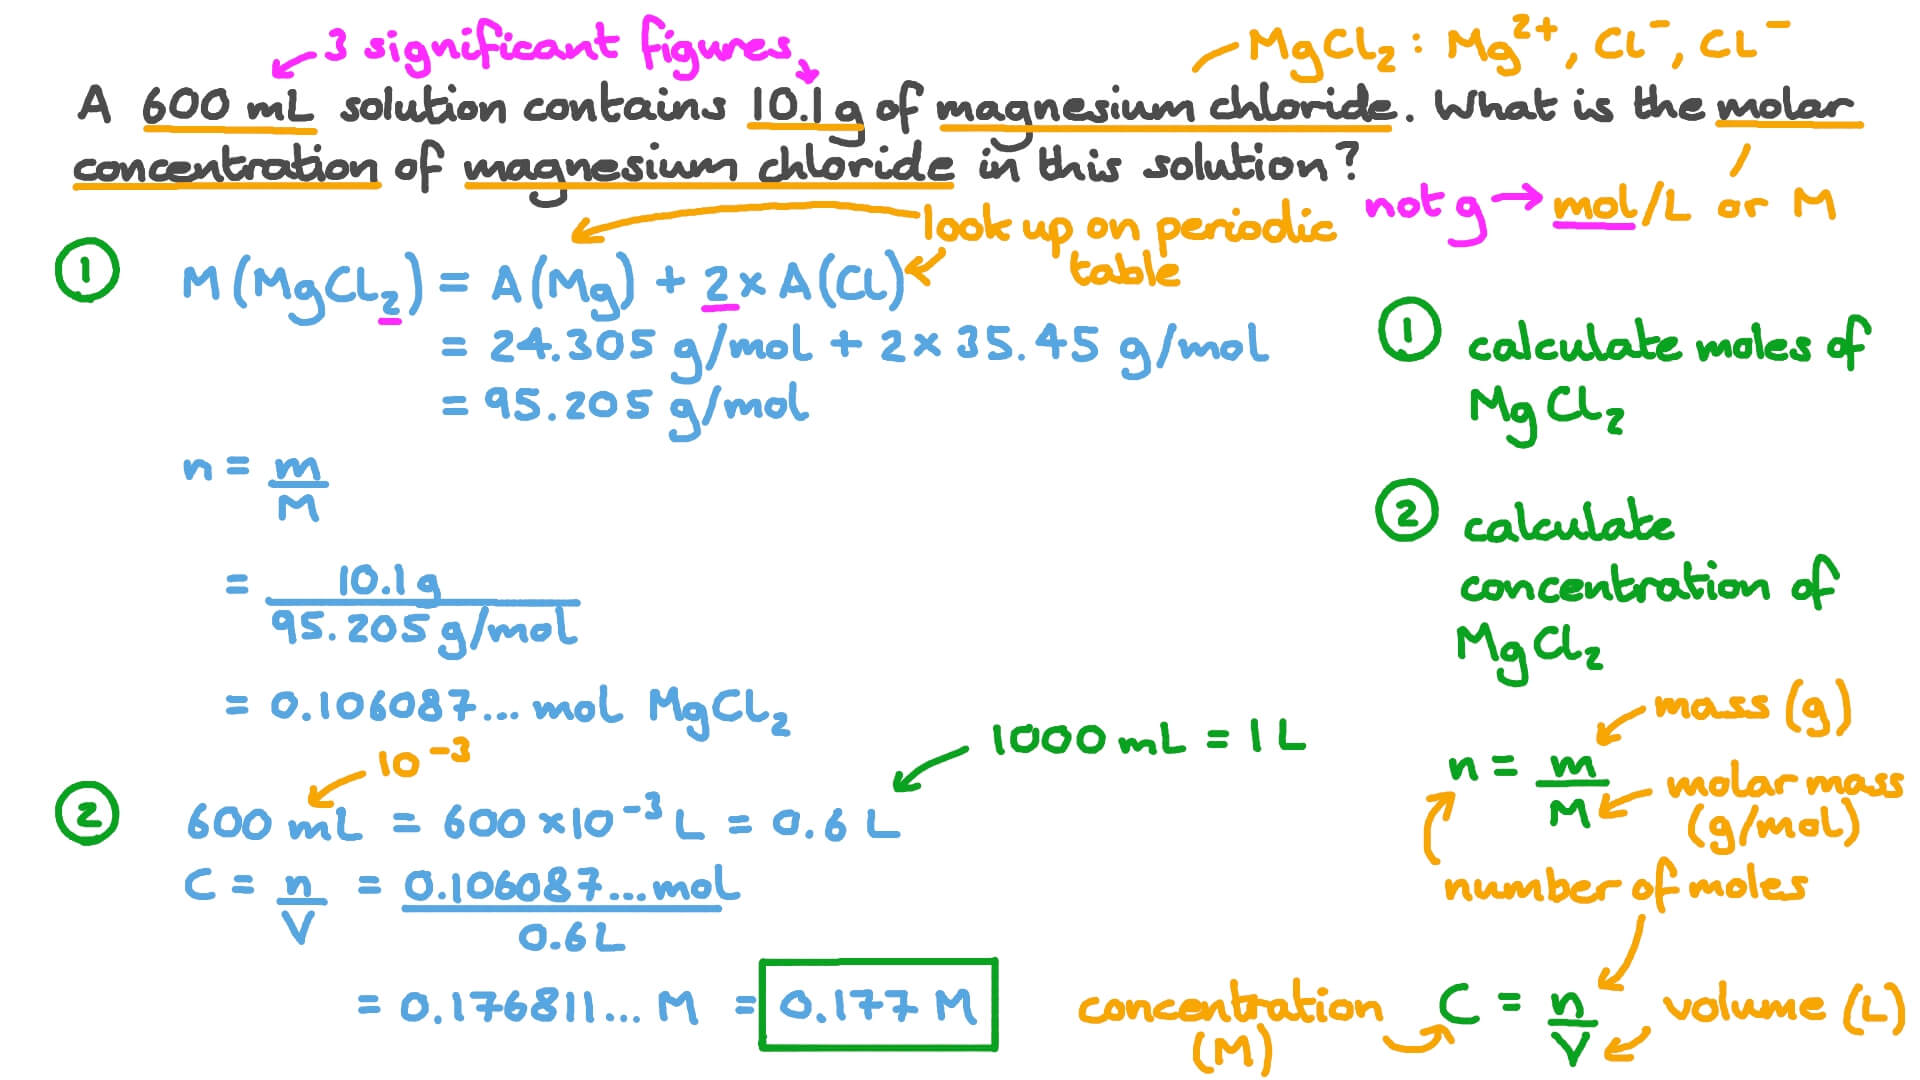 3 significant figures
MgCl₂ : Mg²⁺, Cl⁻, Cl⁻
A 600 mL solution contains 10.1 g of magnesium chloride. What is the molar
concentration of magnesium chloride in this solution?
not g → mol/L or M
look up on periodic
table
① M(MgCl₂) = A(Mg) + 2 × A(Cl)
= 24.305 g/mol + 2 × 35.45 g/mol
= 95.205 g/mol
n = m/M
= 10.1 g / 95.205 g/mol
= 0.106087... mol MgCl₂
10⁻³
1000 mL = 1 L
② 600 mL = 600 ×10⁻³ L = 0.6 L
C = n/V = 0.106087... mol / 0.6 L
= 0.176811... M = 0.177 M
① calculate moles of
MgCl₂
② calculate
concentration of
MgCl₂
mass (g)
n = m/M
molar mass
(g/mol)
number of moles
concentration
(M)
C = n/V
volume (L)